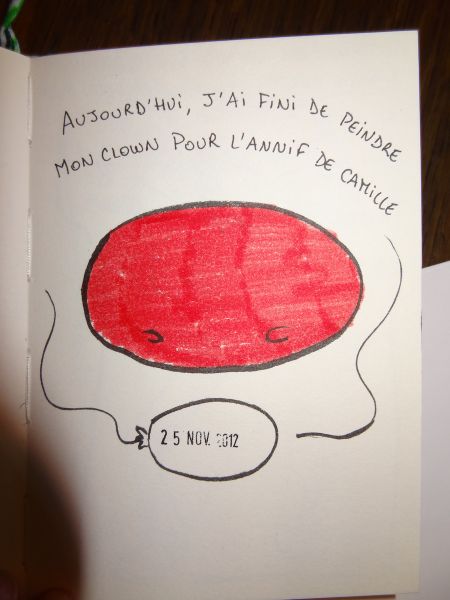 AUJOURD'HUI, J'AI FINI DE PEINDRE
MON CLOWN POUR L'ANNIF DE CAMILLE
25 NOV. 2012